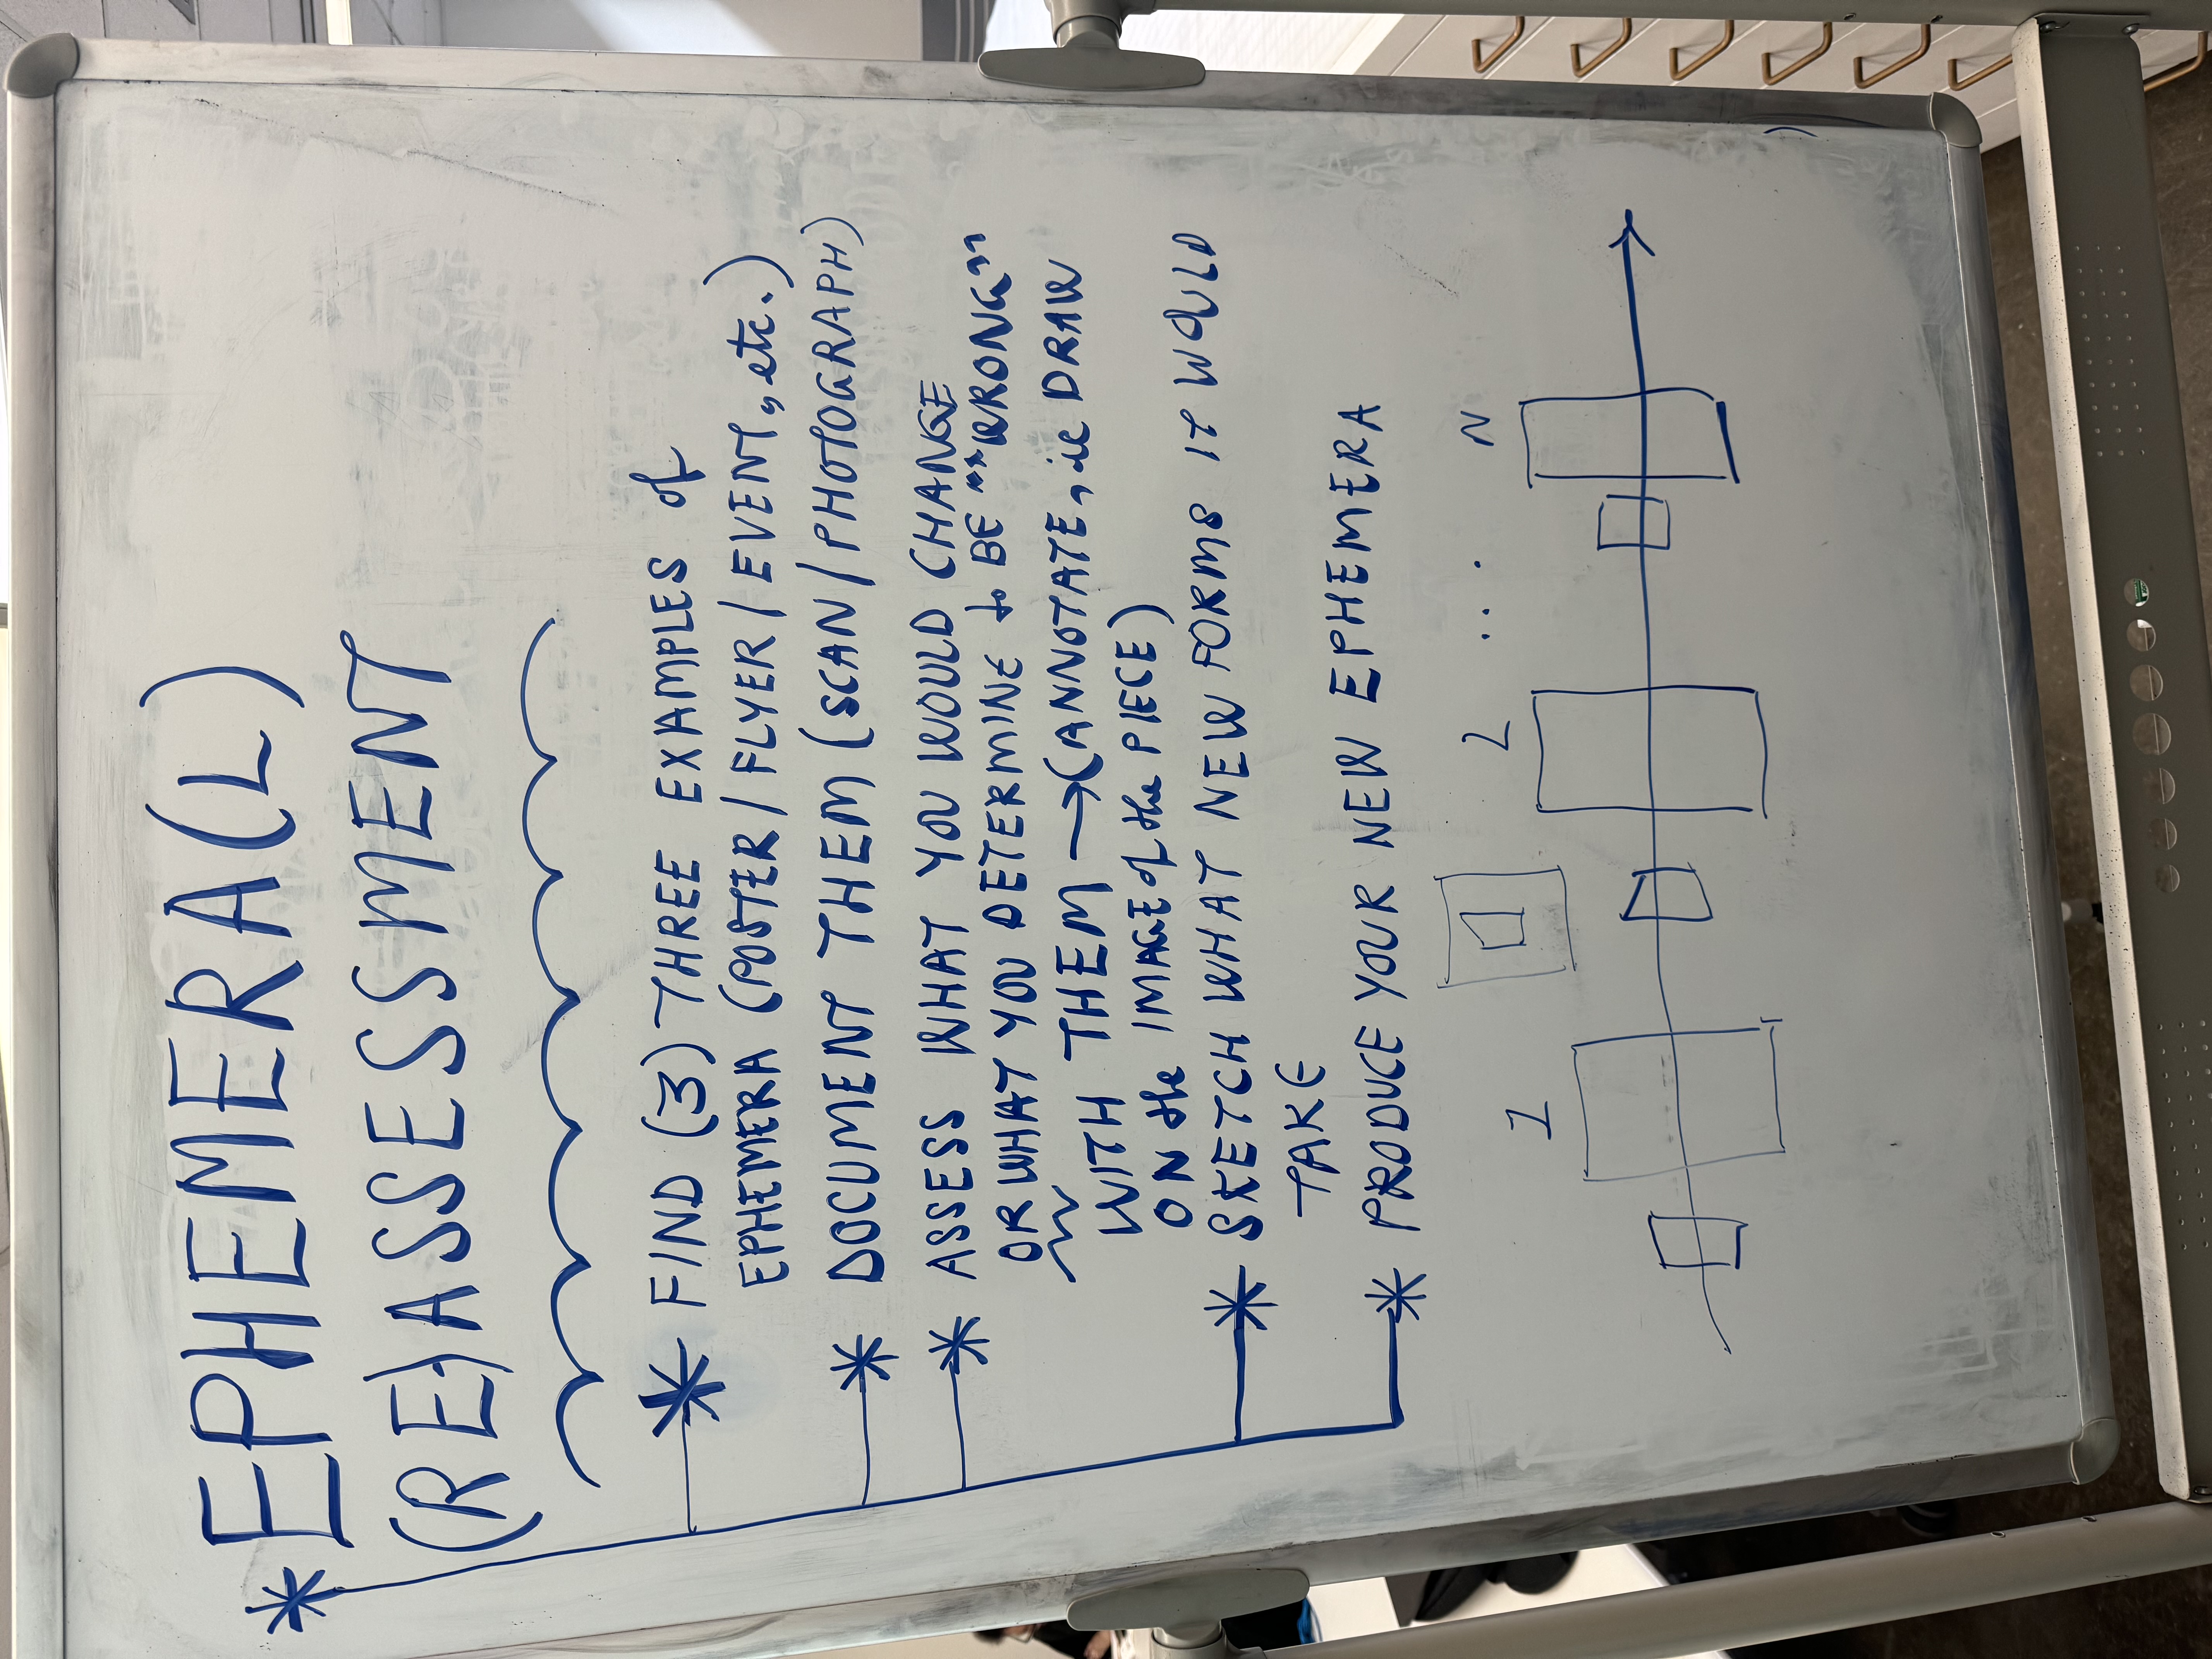 * EPHEMERA(L)
(RE)ASSESSMENT
* FIND (3) THREE EXAMPLES of
EPHEMERA (POSTER/FLYER/EVENT, etc.)
* DOCUMENT THEM (SCAN/PHOTOGRAPH)
* ASSESS WHAT YOU WOULD CHANGE
OR WHAT YOU DETERMINE to BE "WRONG"
WITH THEM → (ANNOTATE, ie DRAW
ON the IMAGE of the PIECE)
* SKETCH WHAT NEW FORMS IT WOULD
TAKE
* PRODUCE YOUR NEW EPHEMERA
1 2 ... N